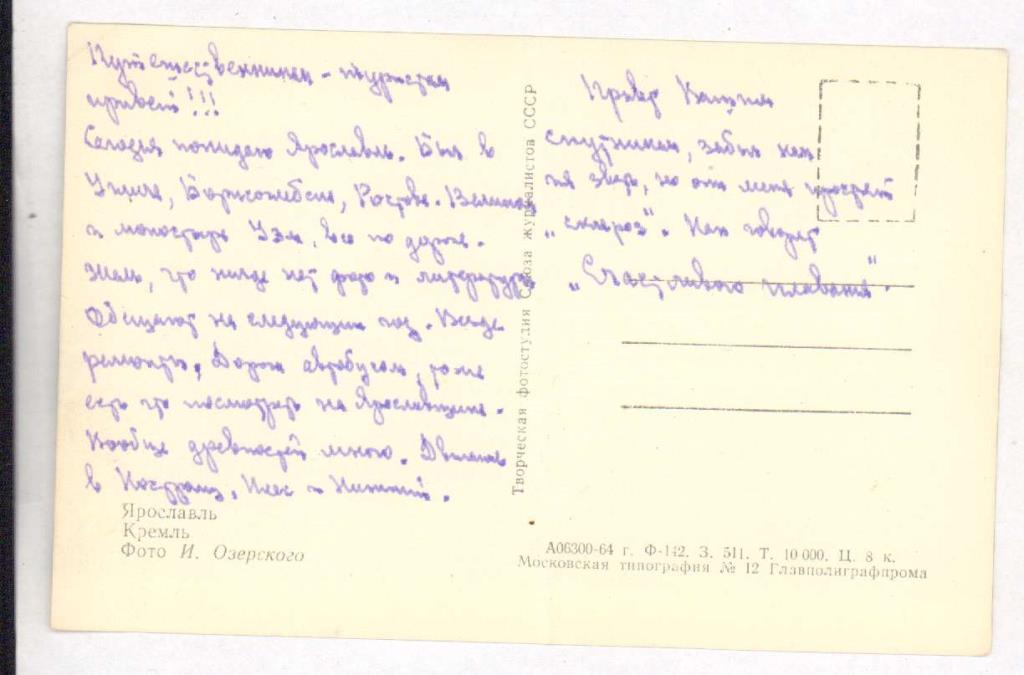 Путешественникам - туристам
привет!!!
Сегодня покидаю Ярославль. Был в
Угличе, Борисоглебске, Ростове-Великом
и монастыре, все по дороге.
Жаль, что нигде нет фото и литературы.
Обещают на следующий год. Везде
ремонты. Дорога автобусом, тоже
есть что посмотреть на Ярославщине.
Вообще древностей много. Двигаюсь
в Кострому, Плес и Нижний.
Привет Вашим
спутникам, забыл как
их звать, но от меня
„склероз". Как говорят
„Счастливого плавания".
Творческая фотостудия Союза журналистов СССР
Ярославль
Кремль
Фото И. Озерского
А06300-64 г. Ф-142. З. 511. Т. 10 000. Ц. 8 к.
Московская типография № 12 Главполиграфпрома